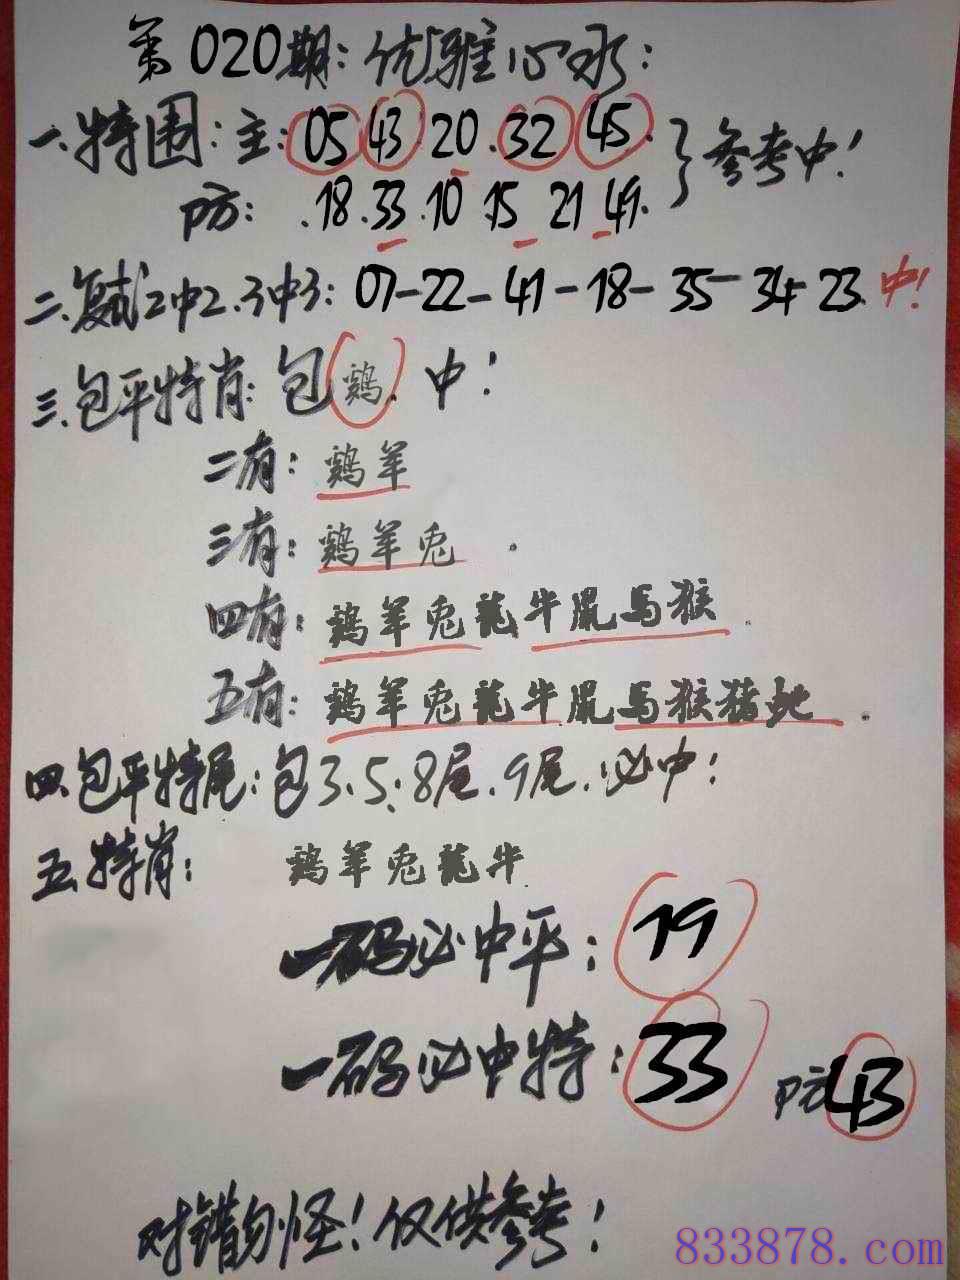 第020期：优雅心水：
一.特围：主：05.43.20.32.45.
防：.18.33.10.15 21.49.
参考中！
二.复式2中2.3中3：07-22-41-18-35-34-23.中！
三.包平特肖：包鸡.中！
二有：鸡羊
三有：鸡羊兔.
四有：鸡羊兔龍牛鼠马猴.
五有：鸡羊兔龍牛鼠马猴猪蛇.
四.包平特尾：包3.5.8尾.9尾.必中！
五.特肖：鸡羊兔龍牛.
一码必中平：19
一码必中特：33 防43
对错勿怪！仅供参考！
833878.com